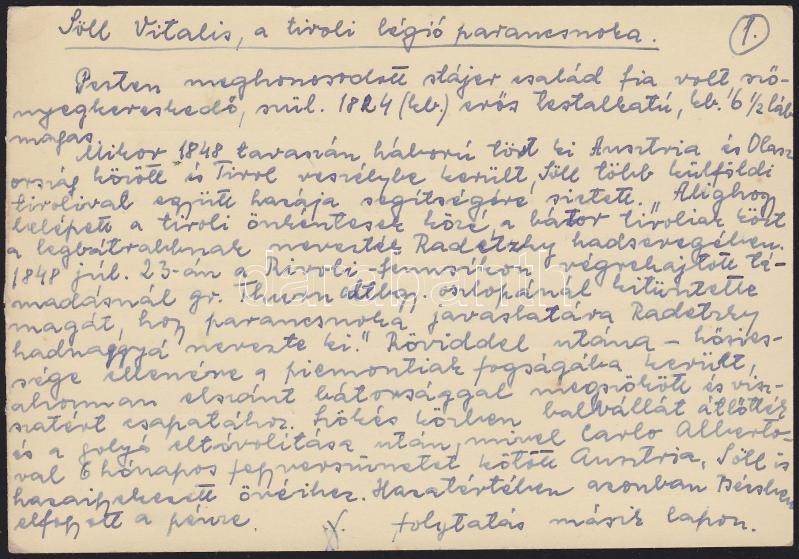 Söll Vitalis, a tiroli légió parancsnoka. 1.
Pesten meghonosodott stájer család fia volt sző-
nyegkereskedő, szül. 1824 (kb.) erős testalkatú, kb. 6 1/2 láb
magas.
Mikor 1848 tavaszán háború tört ki Ausztria és Olasz
ország között és Tirol veszélybe került, Söll több külföldi
tirolival együtt hazája segítségére sietett. "Alighogy
belépett a tiroli önkéntesek közé, a bátor tiroliak közt
a legbátrabbnak nevezték Radetzky hadseregében.
1848 júl. 23-án a Rivoli-fennsíkon végrehajtott tá-
madásnál gr. Thurn csopánál kitüntette
magát, hogy parancsnoka javaslatára Radetzky
hadnaggyá nevezte ki." Röviddel utána - hősies-
sége ellenére a piemontiak fogságába került,
ahonnan elszánt bátorsággal megszökött és visz-
szatért csapatához. Szökés közben balvállát átlőtték
és a golyó eltávolítása után, mivel Carlo Alberto-
val 6 hónapos fegyverszünetet kötött Ausztria, Söll is
hazaigyekezett övéihez. Hazatértében azonban Bécsben
elfogyott a pénze. folytatás másik lapon.
darabanth